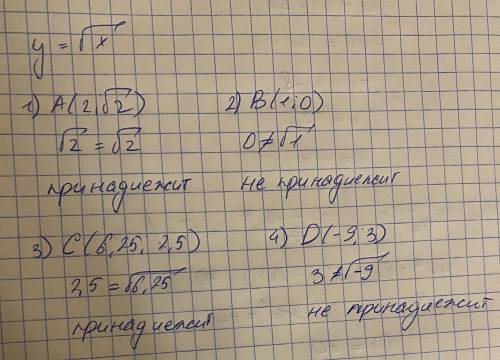 y = √x
1) A(2; √2)
√2 = √2
принадлежит
2) B(1; 0)
0 ≠ √1
не принадлежит
3) C(6,25; 2,5)
2,5 = √6,25
принадлежит
4) D(-9; 3)
3 ≠ √-9
не принадлежит